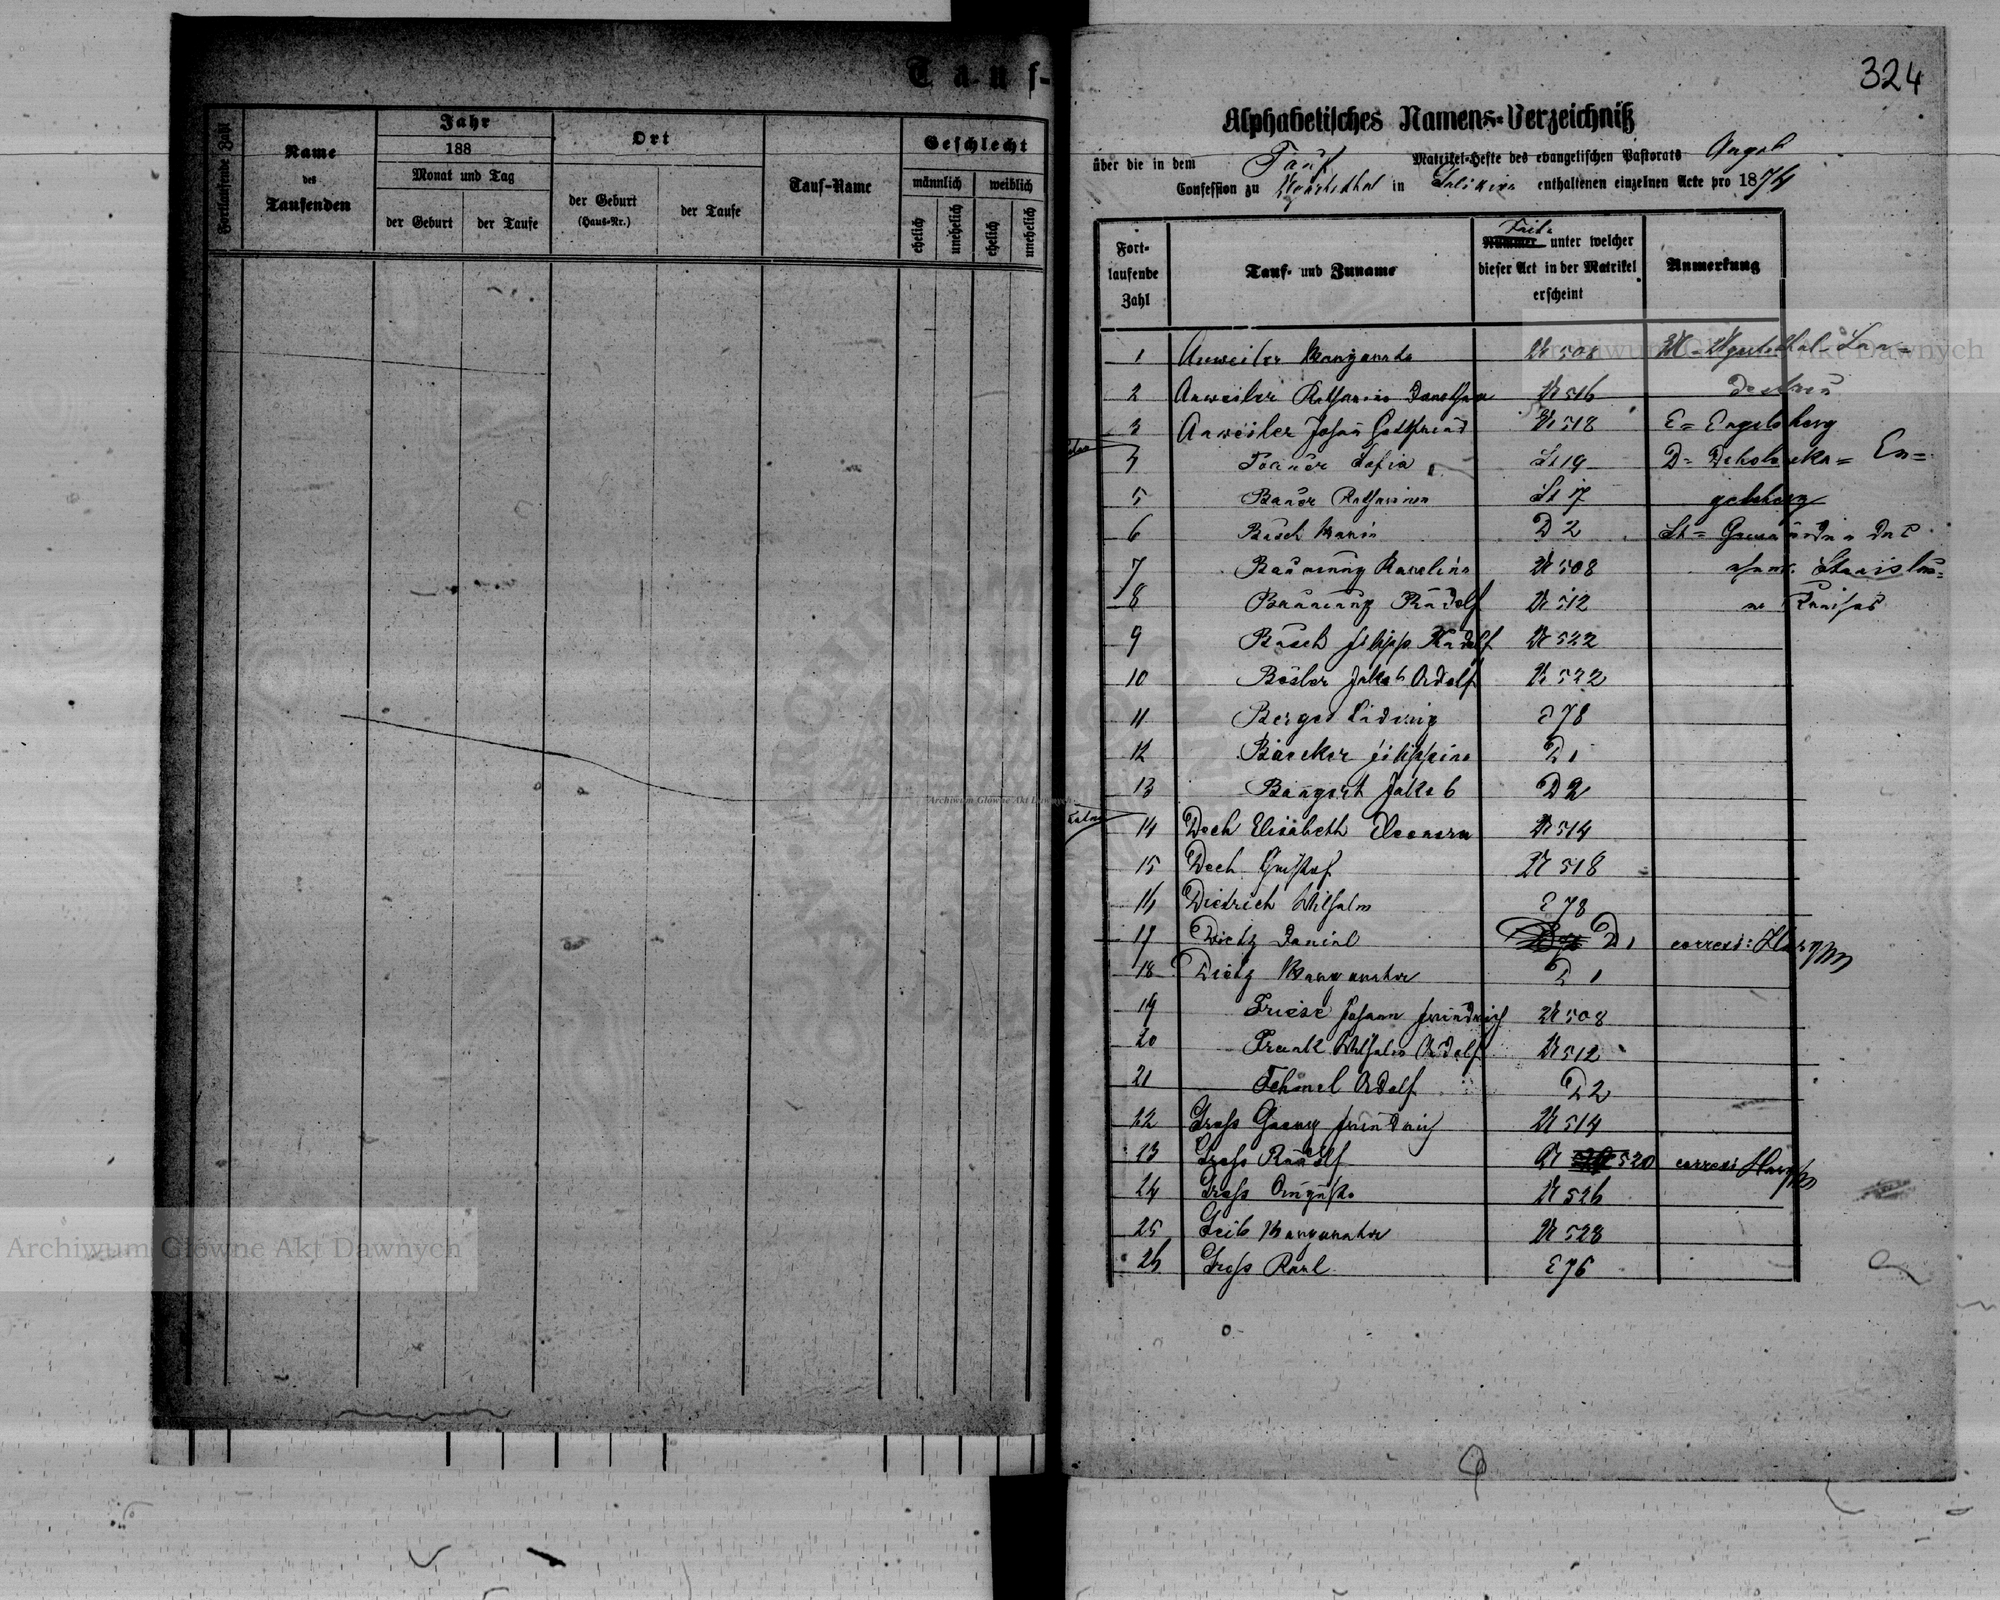 Tauf-
Fortlaufende Zahl
Name
des
Taufenden
Jahr
188
Monat und Tag
der Geburt
der Taufe
Ort
der Geburt
(Haus-Nr.)
der Taufe
Tauf-Name
Geschlecht
männlich
weiblich
ehelich
unehelich
ehelich
unehelich
324
Alphabetisches Namens-Verzeichniß
über die in dem Tauf Matrikel-Hefte des evangelischen Pastorats Augsb
Confession zu in Galizien enthaltenen einzelnen Acte pro 1874
Fort-
laufende
Zahl
Tauf- und Zuname
Seite
Nummer unter welcher
dieser Act in der Matrikel
erscheint
Anmerkung
1 Anweiler Margareta U 508
2 Anweiler Katharina Dorothea U 516
3 Anweiler Johan Gottfried U 518 E = Engelsberg
4 Bauer Sofia St 19 D = En=
5 Bauer Katharina St 17 gelsberg
6 Busch Maria D 2 St =
7 Baumung Karolina U 508 Stanislau=
8 Baumung Rudolf U 512
9 Busch Filipp Rudolf U 522
10 Bösler Jakob Adolf U 522
11 Berger Ludwig E 78
12 Bäcker Filippina D 1
13 Bangert Jakob D 2
14 Dech Elisabeth Eleonora U 514
15 Dech Gustaf U 518
16 Diedrich Wilhelm E 78
17 Dietz Daniel D 1
18 Dietz Margaretha D 1
19 Friese Johann Friedrich U 508
20 Frank Wilhelm Adolf U 512
21 Adolf D 2
22 Gross Georg Friedrich U 514
23 Gross Rudolf U 520
24 Gross Augusta U 526
25 Geib Margaretha U 528
26 Gross Karl E 76
Archiwum Główne Akt Dawnych
Archiwum Główne Akt Dawnych
Archiwum Główne Akt Dawnych